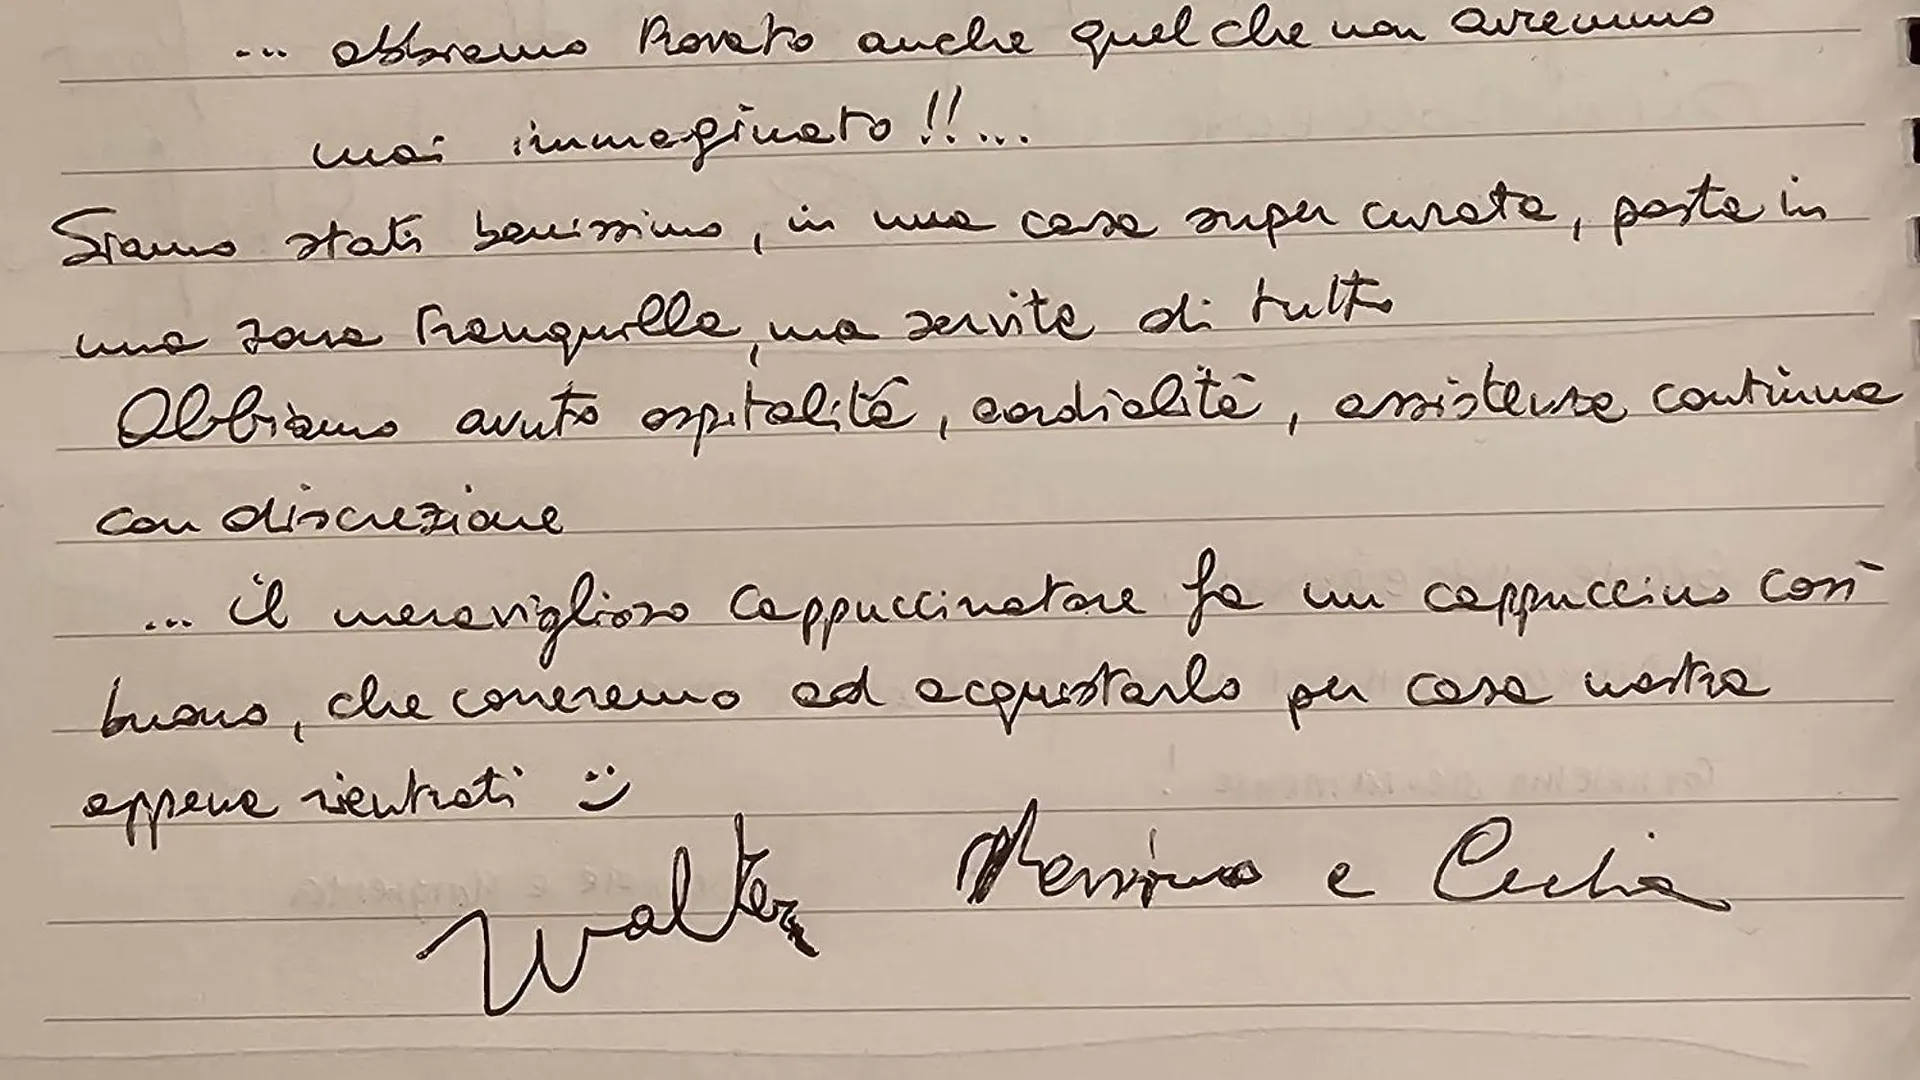 ... abbiamo trovato anche quel che non avremmo
mai immaginato!!...
Siamo stati benissimo, in una casa super curata, posta in
una zona tranquilla, ma servita di tutto
Abbiamo avuto ospitalità, cordialità, assistenza continua
con discrezione
... il meraviglioso cappuccinatore fa un cappuccino così
buono, che correremo ad acquistarlo per casa nostra
appena rientrati :)
Walter Massimo e Cecilia